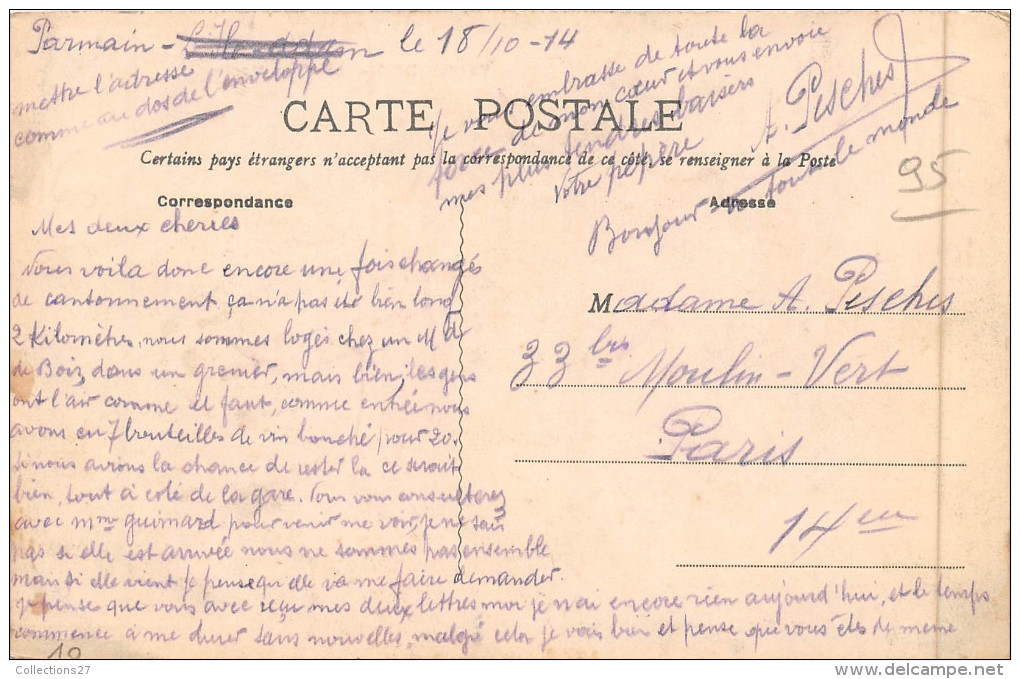 Parmain - L'Isle-Adam le 18/10-14
mettre l'adresse
comme au dos de l'enveloppe
Je vous embrasse de toute la
force de mon cœur et vous envoie
mes plus tendres baisers
Votre pépère
A. Pesches
Bonjour à tout le monde
95
CARTE POSTALE
Certains pays étrangers n'acceptant pas la correspondance de ce côté, se renseigner à la Poste
Correspondance
Adresse
Mes deux cheries
Nous voila donc encore une fois changés
de cantonnement ça n'a pas été bien long
2 Kilomètres, nous sommes logés chez un Md
de Bois, dans un grenier, mais bien, les gens
ont l'air comme il faut, comme entrée nous
avons eu 7 bouteilles de vin bouché pour 20.
Si nous avions la chance de rester la ce serait
bien, tout à coté de la gare. Vous vous consulterez
avec Mme Guimard pour venir me voir, je ne sais
pas si elle est arrivée nous ne sommes pas ensemble
mais si elle vient je pense qu'elle va me faire demander.
Je pense que vous avec reçu mes deux lettres moi je n'ai encore rien aujourd'hui, et le temps
commence à me durer sans nouvelles, malgré cela je vais bien et pense que vous êtes de même
Madame A. Pesches
33 bis Moulin-Vert
Paris
14eme
10
Collections27
www.delcampe.net